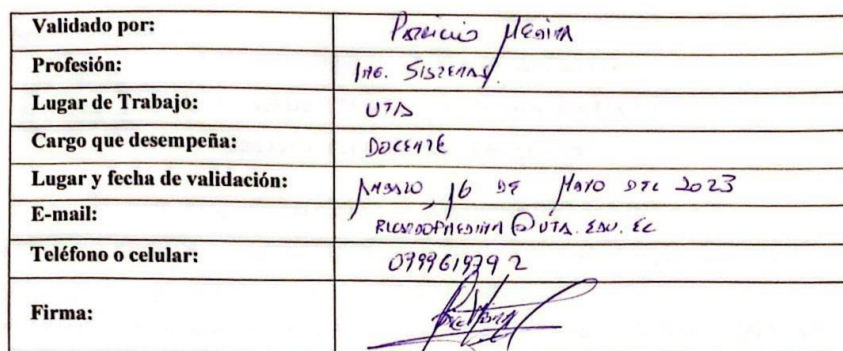 Validado por: Patricio Medina
Profesión: ING. SISTEMAS
Lugar de Trabajo: UTA
Cargo que desempeña: DOCENTE
Lugar y fecha de validación: AMBATO, 16 DE MAYO DEL 2023
E-mail: RICARDOPMEDINA@UTA.EDU.EC
Teléfono o celular:
Firma: